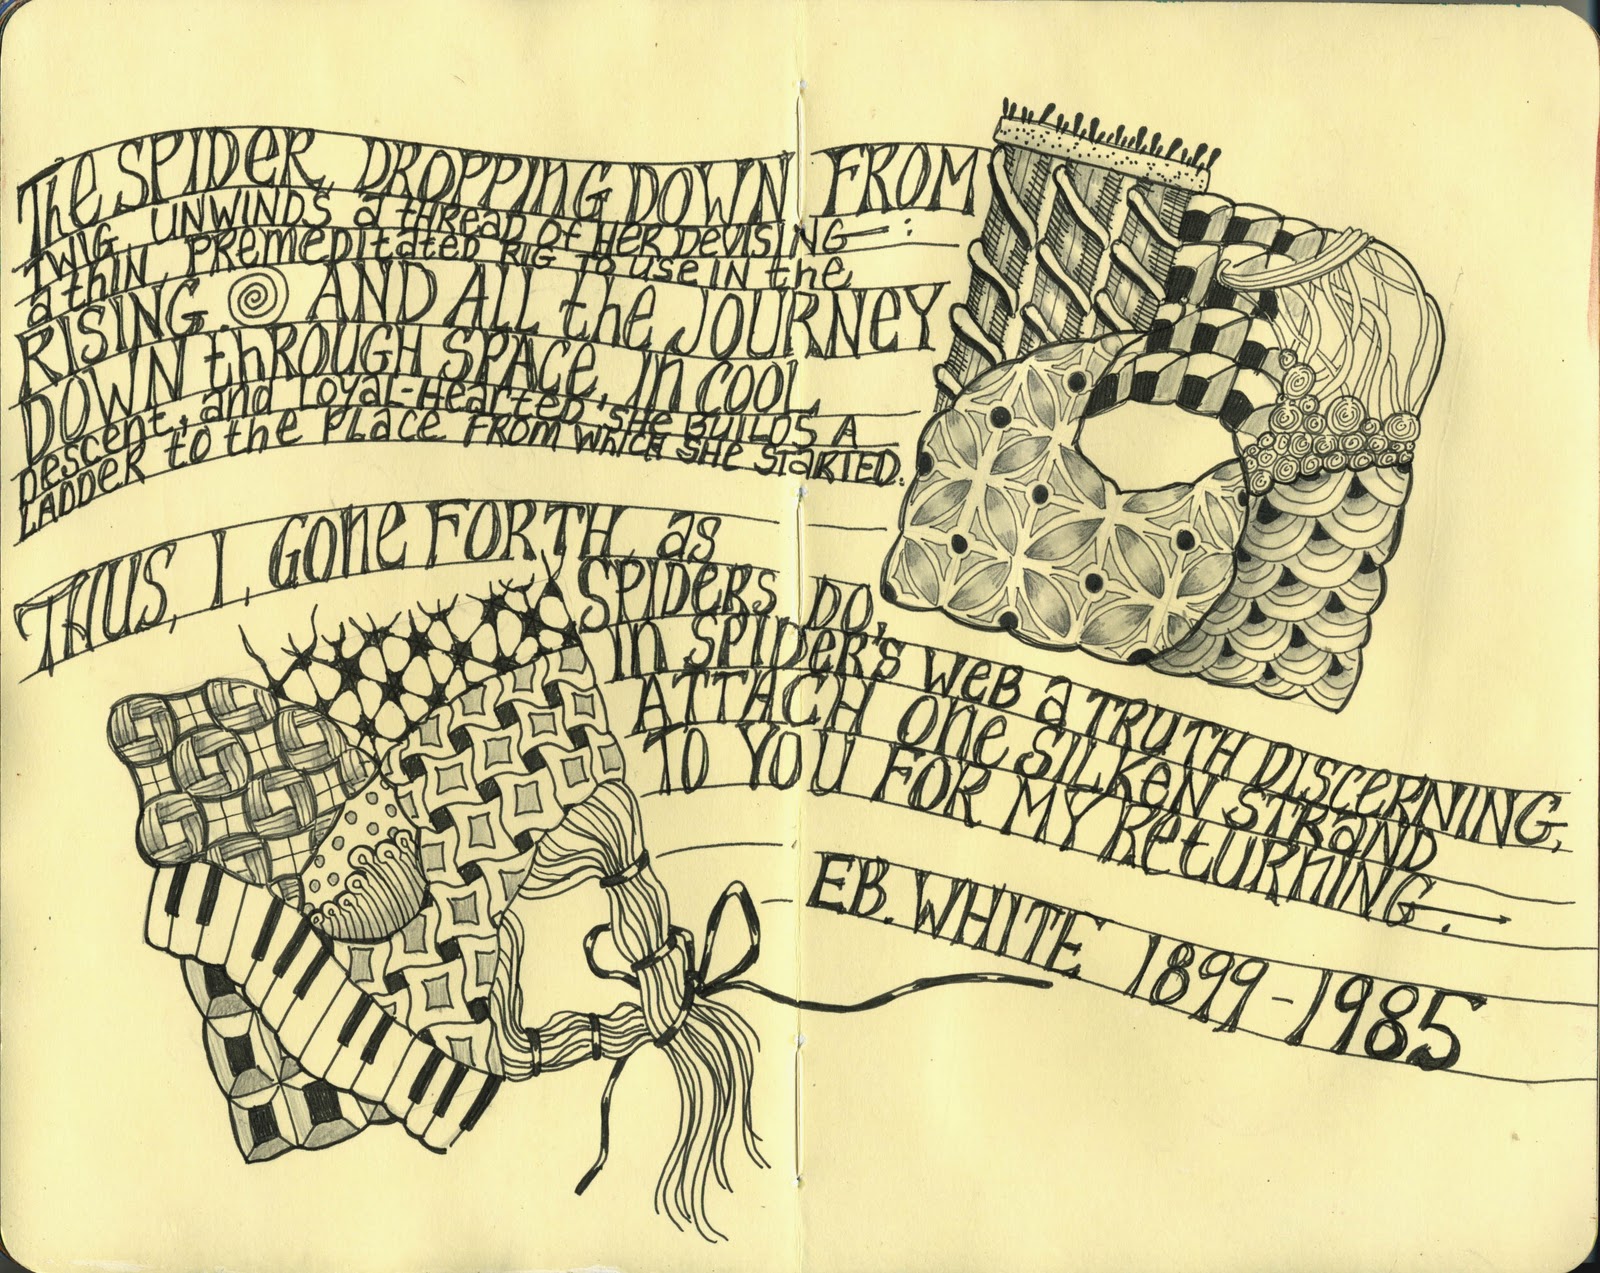 The SPIDER, DROPPING DOWN FROM
TWIG, UNWINDS a tHREAD OF HER DEVISING— :
a tHIN PREMEDItated RIG TO USE IN the
RISING. AND ALL the JOURNEY
DOWN thROUGH SPACE, IN COOL
DESCENT, and LOYAL-HEARTED, SHE BUILDS A
LADDER to the PLACE FROM WHICH SHE STARTED.
THUS, I, GONE FORTH, as
SPIDERS DO,
IN SPIDER'S WEB a TRUTH DISCERNING,
ATTACH ONE SILKEN STRAND
TO YOU FOR MY RETURNING.
EB. WHITE 1899-1985